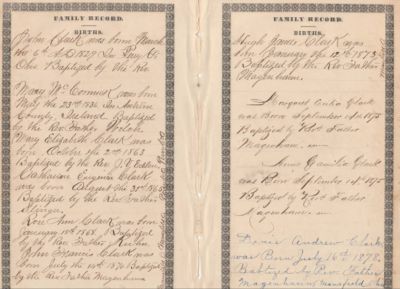 FAMILY RECORD.
BIRTHS.
John Clark was born March
the 6th A.D. 1829 In Perry Co
Ohio Baptized by the Rev.
Mary Mc Cormick was born
May the 23rd 1836 In
County, Ireland Baptized
by the Rev. Father
Mary Elizabeth Clark was
born October the 2nd 1863
Baptized by the Rev. J. V.
Catharine Clark
was born August the 31st 1865
Baptized by the Rev. Father
Rose Ann Clark was born
January 18th 1868. Baptized
by the Rev. Father
John Francis Clark was
born July the 14th 1870 Baptized
by the Rev. Father Magenhann
FAMILY RECORD.
BIRTHS.
Hugh James Clark was
born January the 12th 1873
Baptized by the Rev. Father
Magenhann.
Margaret Clark
was Born September 14th 1875
Baptized by Rev. Father
Magenhann.
Anna Clark
was Born September 14th 1875
Baptized by Rev. Father
Magenhann
Andrew Clark
was Born July 16th 1878.
Baptized by Rev. Father
Magenhann Mansfield